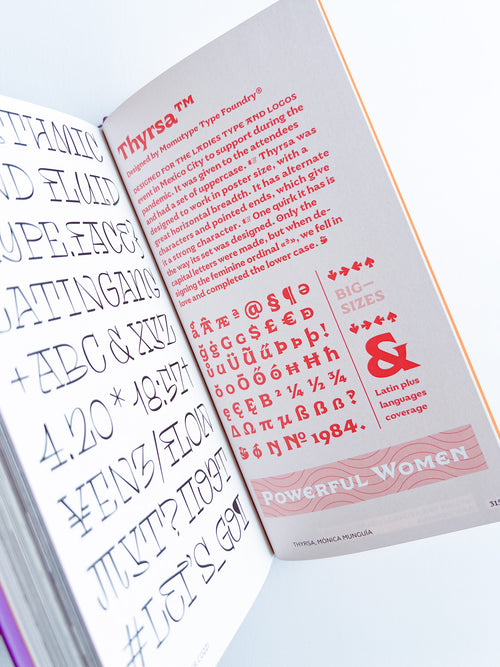 STHMIC
ND FLUID
TYPEFACE?
LATINGANG
+ABC & XYZ+
4.20* 18:57+
¥EN3/FLOW
MYT? ΠΟΣΤ
#LET'S GO¶
Thyrsa™
Designed by Momutype Type Foundry®
DESIGNED FOR THE LADIES TYPE AND LOGOS
event in Mexico City to support during the
pandemic. It was given to the attendees
and had a set of uppercase. Thyrsa was
designed to work in poster size, with a
great horizontal breadth. It has alternate
characters and pointed ends, which give
it a strong character. One quirk it has is
the way its set was designed. Only the
capital letters were made, but when de-
signing the feminine ordinal «ª», we fell in
love and completed the lower case.
BIG—
SIZES
&
Latin plus
languages
coverage
@ § ¶ ə
$ £ € Đ
¼ ½ ¾
Δ Ω π μ
№ 1984.
POWERFUL WOMEN
THYRSA, MÓNICA MUNGUÍA
315